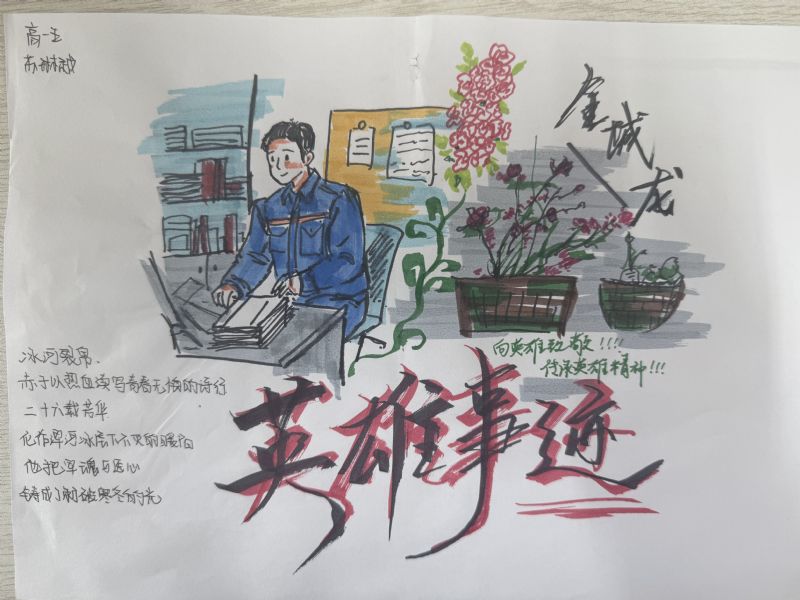 高一五
金城龙
向英雄致敬!!!!
传承英雄精神!!!
英雄事迹
冰河裂帛.
赤子以热血续写青春无悔的诗行
二十六载芳华
化作浑河冰层下不灭的暖阳
他把军魂与医心
铸成了刺破寒冬的光